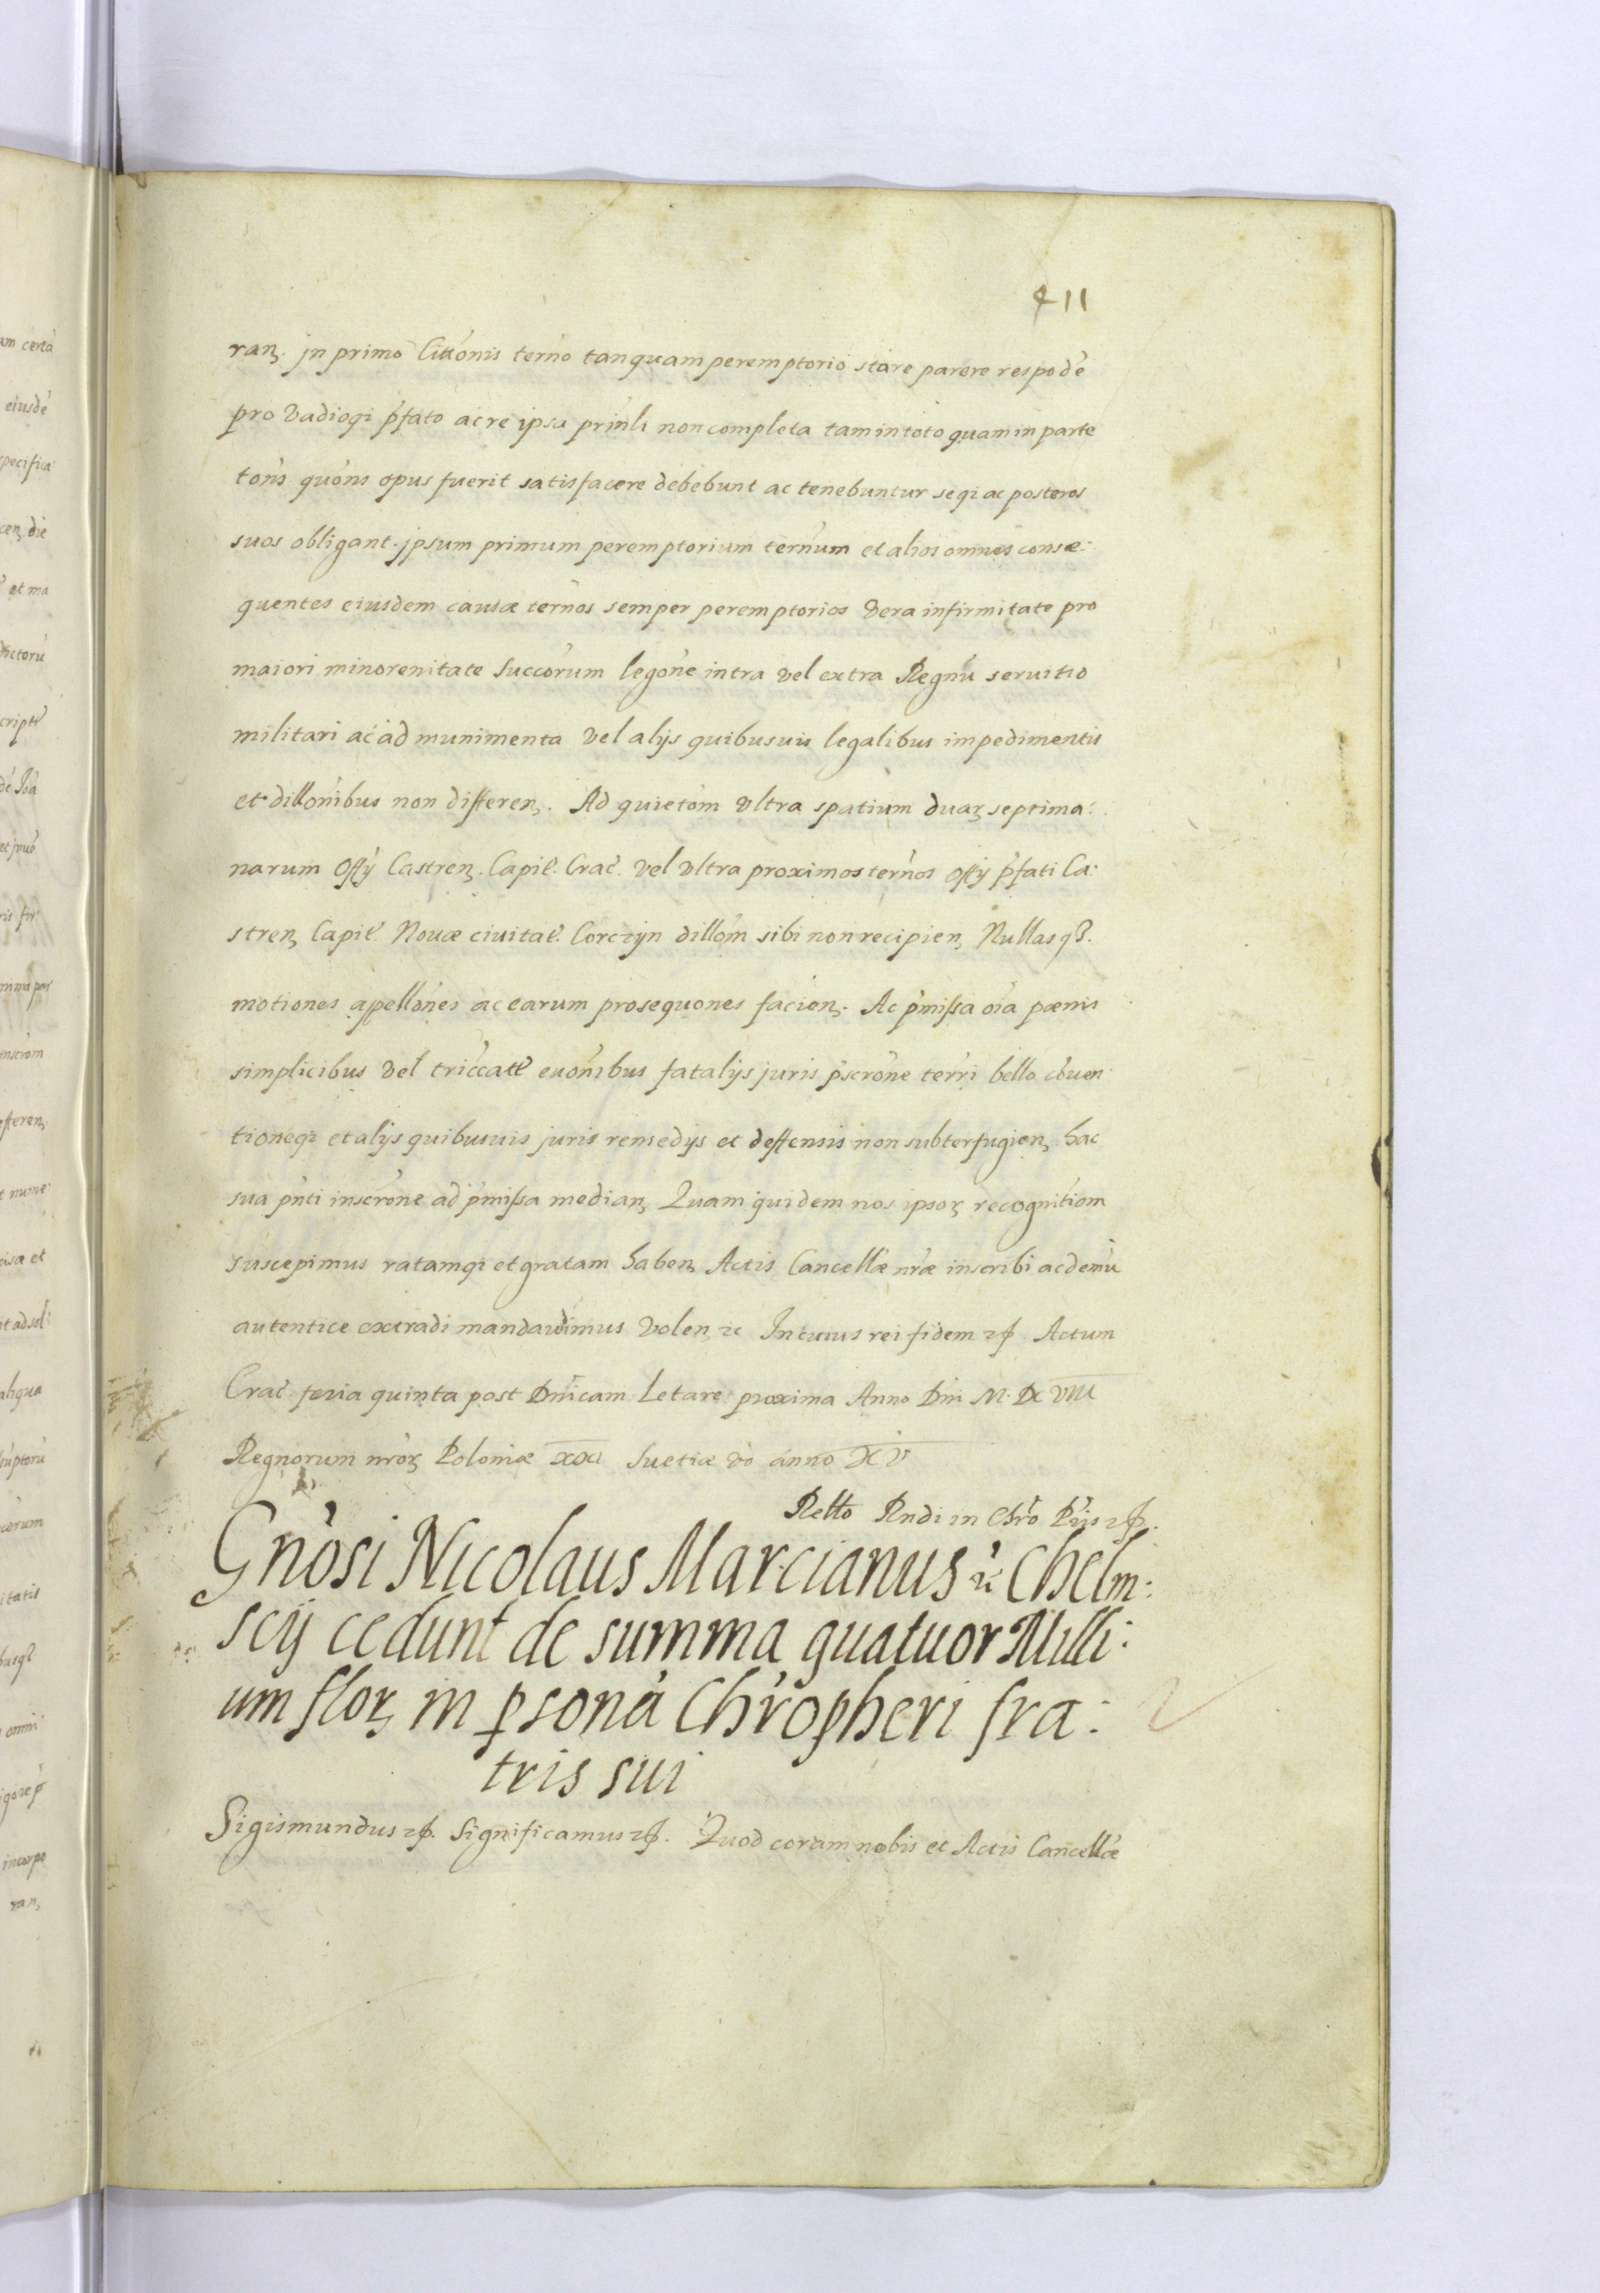 411
ranꝫ. jn primo Cittōnis terño tanquam peremptorio stare parere respodē
pro Vadioqꝫ p̃fato ac re ipsa prinłi non completa tam in toto quam in parte
tot́ns quot́ns opus fuerit satisfacere debebunt ac tenebuntur seqꝫ ac posteros
suos obligant. jpsum primum peremptorium terñum et alios omnes conse:
quentes eiusdem causæ terños semper peremptorios Vera infirmitate pro
maiori minorenitate Succōrum legōne intra vel extra Regnū seruitio
militari ac ad munimenta vel alijs quibusuis legalibus impedimentis
et dillōnibus non differenꝫ. Ad quietōm vltra spatium duarꝫ septima:
narum Offij Castrenꝫ. Capit̃. Crac̃. vel vltra proximos terños offij p̃fati Ca:
strenꝫ Capit̃. Nouæ ciuitat̃. Corczyn dillōm sibi non recipienꝫ Nullasqꝫ.
motiones appellōnes ac earum prosequōnes facienꝫ. Ac p̃missa oı̃a pœnis
simplicibus vel triccatt̃ euōnibus fatalijs juris p̃scrōne terr̃i bello c̃ouen
tioneqꝫ et alijs quibusuis juris remedijs et deffensis non subterfugienꝫ hac
sua p̃nti inscrōne ad p̃missa medianꝫ Quam quidem nos ipsorꝫ recognitiōm
suscepimus ratamqꝫ et gratam habenꝫ Actis Cancellæ nr̃æ inscribi ac demū
autentice extradi mandauimus Volenꝫ ꝛc In cuius rei fidem ꝛꝑ. Actum
Crac̃ feria quinta post Dnı̃cam Letare proxima Anno Dnı̃ M. DC VIII
Regnorum nr̃orꝫ Poloniæ XXI Suetiæ v̊o anno XV
Relło Rndi in Chr̃o Pr̃is ꝛꝑ.
Gñosi Nicolaus Marcianus ꝛc̃ Chelm:
scij cedunt de summa quatuor Milli:
um florꝫ in ꝑsonā Chr̃opheri fra:
tris sui
Sigismundus ꝛꝑ. Significamus ꝛꝑ. Quod coram nobis et Actis Cancellæ